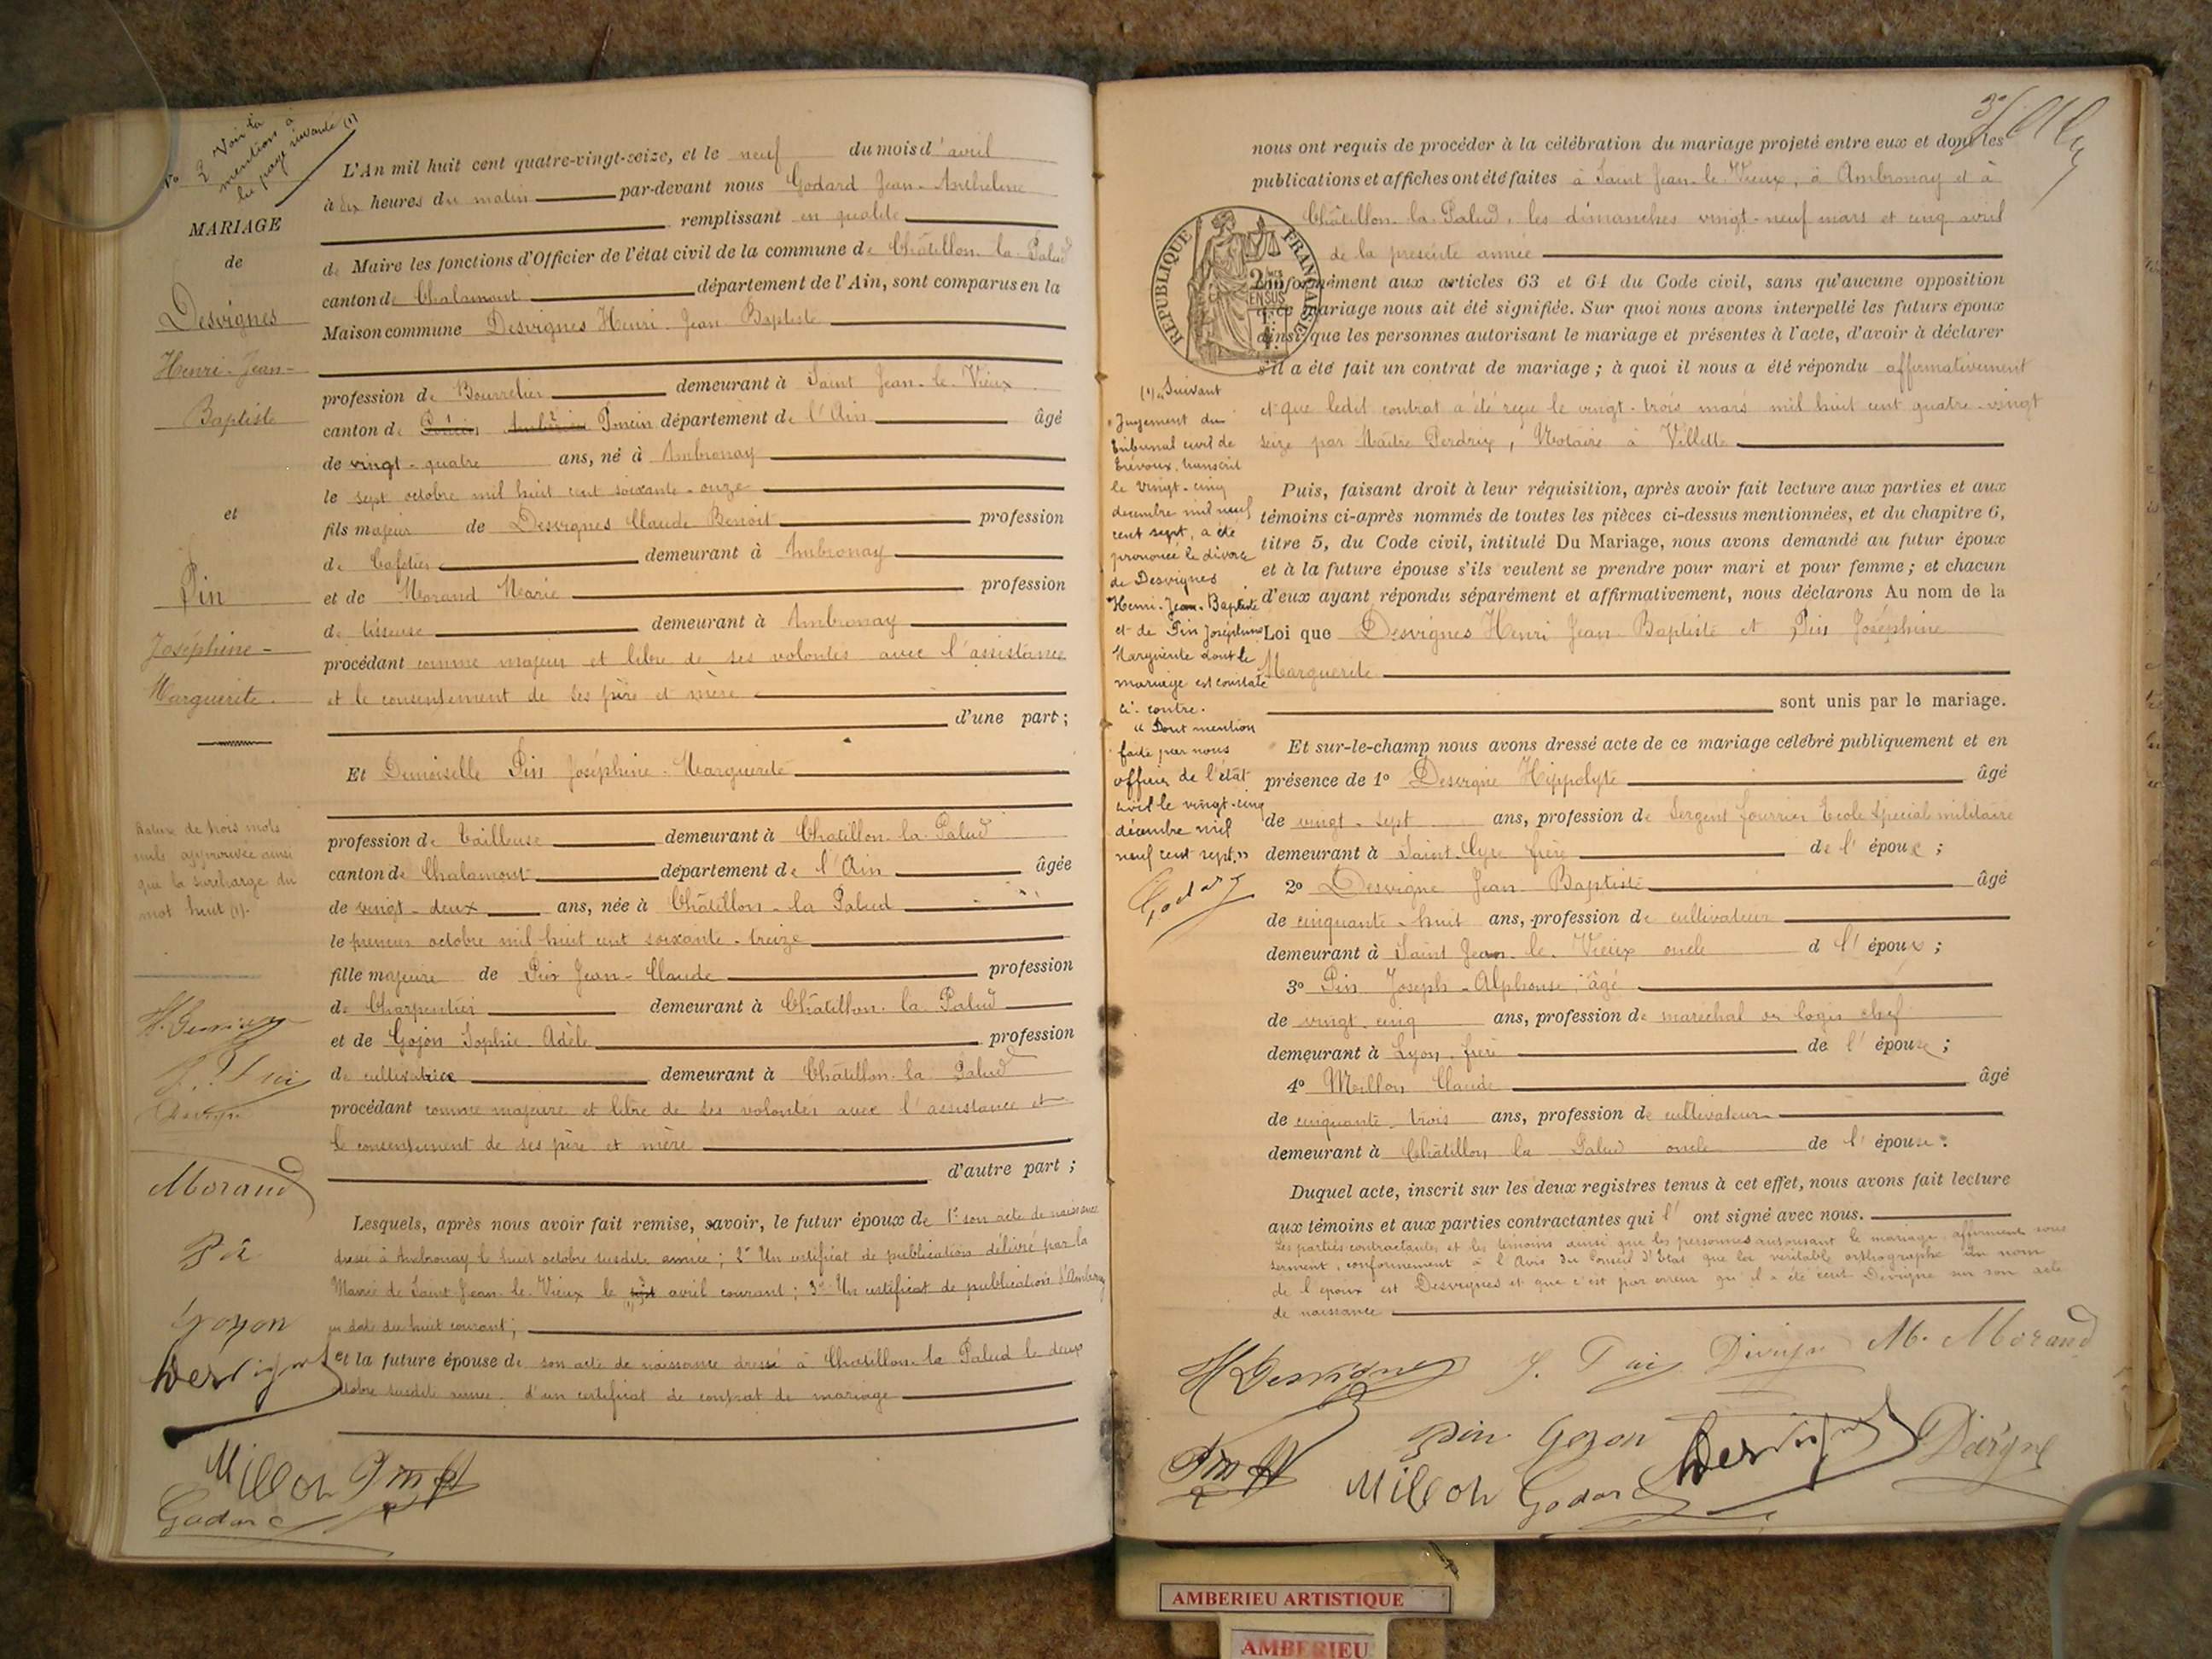 No 2 Voir la
mention à
la page suivante (1)
MARIAGE
de
Desvignes
Henri-Jean-
Baptiste
et
Pin
Joséphine-
Marguerite.
Rature de trois mots
nuls approuvée ainsi
que la surcharge du
mot huit (1).
Morand
Pin
Goyon
Desvignes
Millon
Godard
L'An mil huit cent quatre-vingt-seize, et le neuf du mois d'avril
à dix heures du matin par-devant nous Godard Jean-Anthelme
remplissant en qualité
de Maire les fonctions d'Officier de l'état civil de la commune de Châtillon-la-Palud
canton de Chalamont département de l'Ain, sont comparus en la
Maison commune Desvignes Henri-Jean Baptiste
profession de Bourrelier demeurant à Saint Jean-le-Vieux
canton de Poncin département de l'Ain âgé
de vingt-quatre ans, né à Ambronay
le sept octobre mil huit cent soixante-onze
fils majeur de Desvignes Claude Benoit profession
de Cafetier demeurant à Ambronay
et de Morand Marie profession
de tisseuse demeurant à Ambronay
procédant comme majeur et libre de ses volontés avec l'assistance
et le consentement de ses père et mère
d'une part;
Et Demoiselle Pin Joséphine-Marguerite
profession de Tailleuse demeurant à Chatillon-la-Palud
canton de Chalamont département de l'Ain âgée
de vingt-deux ans, née à Châtillon-la Palud
le premier octobre mil huit cent soixante-treize
fille majeure de Pin Jean-Claude profession
de Charpentier demeurant à Châtillon-la Palud
et de Gojon Sophie-Adèle profession
de cultivatrice demeurant à Châtillon-la-Palud
procédant comme majeure et libre de ses volontés avec l'assistance et
le consentement de ses père et mère
d'autre part;
Lesquels, après nous avoir fait remise, savoir, le futur époux de 1° son acte de naissance
dressé à Ambronay le huit octobre susdite année; 2° Un certificat de publications délivré par la
Mairie de Saint-Jean-le-Vieux le avril courant; 3° Un certificat de publication d'Ambronay
en date du huit courant;
et la future épouse de son acte de naissance dressé à Chatillon-la Palud le deux
octobre susdite année, d'un certificat de contrat de mariage
nous ont requis de procéder à la célébration du mariage projeté entre eux et dont les
publications et affiches ont été faites à Saint Jean-le-Vieux, à Ambronay et à
Châtillon-la-Palud, les dimanches vingt-neuf mars et cinq avril
de la présente année
REPUBLIQUE FRANÇAISE
conformément aux articles 63 et 64 du Code civil, sans qu'aucune opposition
à ce mariage nous ait été signifiée. Sur quoi nous avons interpellé les futurs époux
ainsi que les personnes autorisant le mariage et présentes à l'acte, d'avoir à déclarer
s'il a été fait un contrat de mariage; à quoi il nous a été répondu affirmativement
et que ledit contrat a été reçu le vingt-trois mars mil huit cent quatre-vingt
seize par Maître Perdrix, Notaire à Villette
(1) "Suivant
"Jugement du
tribunal civil de
Trévoux, transcrit
le vingt-cinq
décembre mil neuf
cent sept, a été
prononcé le divorce
de Desvignes
Henri-Jean-Baptiste
et de Pin Joséphine
Marguerite dont le
mariage est constaté
ci-contre.
"Dont mention
faite par nous
officier de l'état
civil le vingt-cinq
décembre mil
neuf cent sept."
Godard
Puis, faisant droit à leur réquisition, après avoir fait lecture aux parties et aux
témoins ci-après nommés de toutes les pièces ci-dessus mentionnées, et du chapitre 6,
titre 5, du Code civil, intitulé Du Mariage, nous avons demandé au futur époux
et à la future épouse s'ils veulent se prendre pour mari et pour femme; et chacun
d'eux ayant répondu séparément et affirmativement, nous déclarons Au nom de la
Loi que Desvignes Henri Jean-Baptiste et Pin Joséphine
Marguerite
sont unis par le mariage.
Et sur-le-champ nous avons dressé acte de ce mariage célébré publiquement et en
présence de 1° Desvigne Hippolyte âgé
de vingt-sept ans, profession de Sergent fourrier Ecole Spécial militaire
demeurant à Saint-Cyre frère de l'époux;
2° Desvigne Jean Baptiste âgé
de cinquante-huit ans, profession de cultivateur
demeurant à Saint Jean-le-Vieux oncle d l'époux;
3° Pin Joseph-Alphonse, âgé
de vingt-cinq ans, profession de maréchal des logis chef
demeurant à Lyon, frère de l'épouse;
4° Millon Claude âgé
de cinquante-trois ans, profession de cultivateur
demeurant à Châtillon la Palud oncle de l'épouse.
Duquel acte, inscrit sur les deux registres tenus à cet effet, nous avons fait lecture
aux témoins et aux parties contractantes qui l'ont signé avec nous.
Les parties contractantes et les témoins ainsi que les personnes autorisant le mariage affirment sous
serment, conformément à l'Avis du Conseil d'Etat que la véritable orthographe du nom
de l'époux est Desvignes et que c'est par erreur qu'il a été écrit Dévigne sur son acte
de naissance
H Desvignes J. Pin Divigne M. Morand
Pin Goyon Desvignes
Millon Godard
AMBERIEU ARTISTIQUE
AMBERIEU